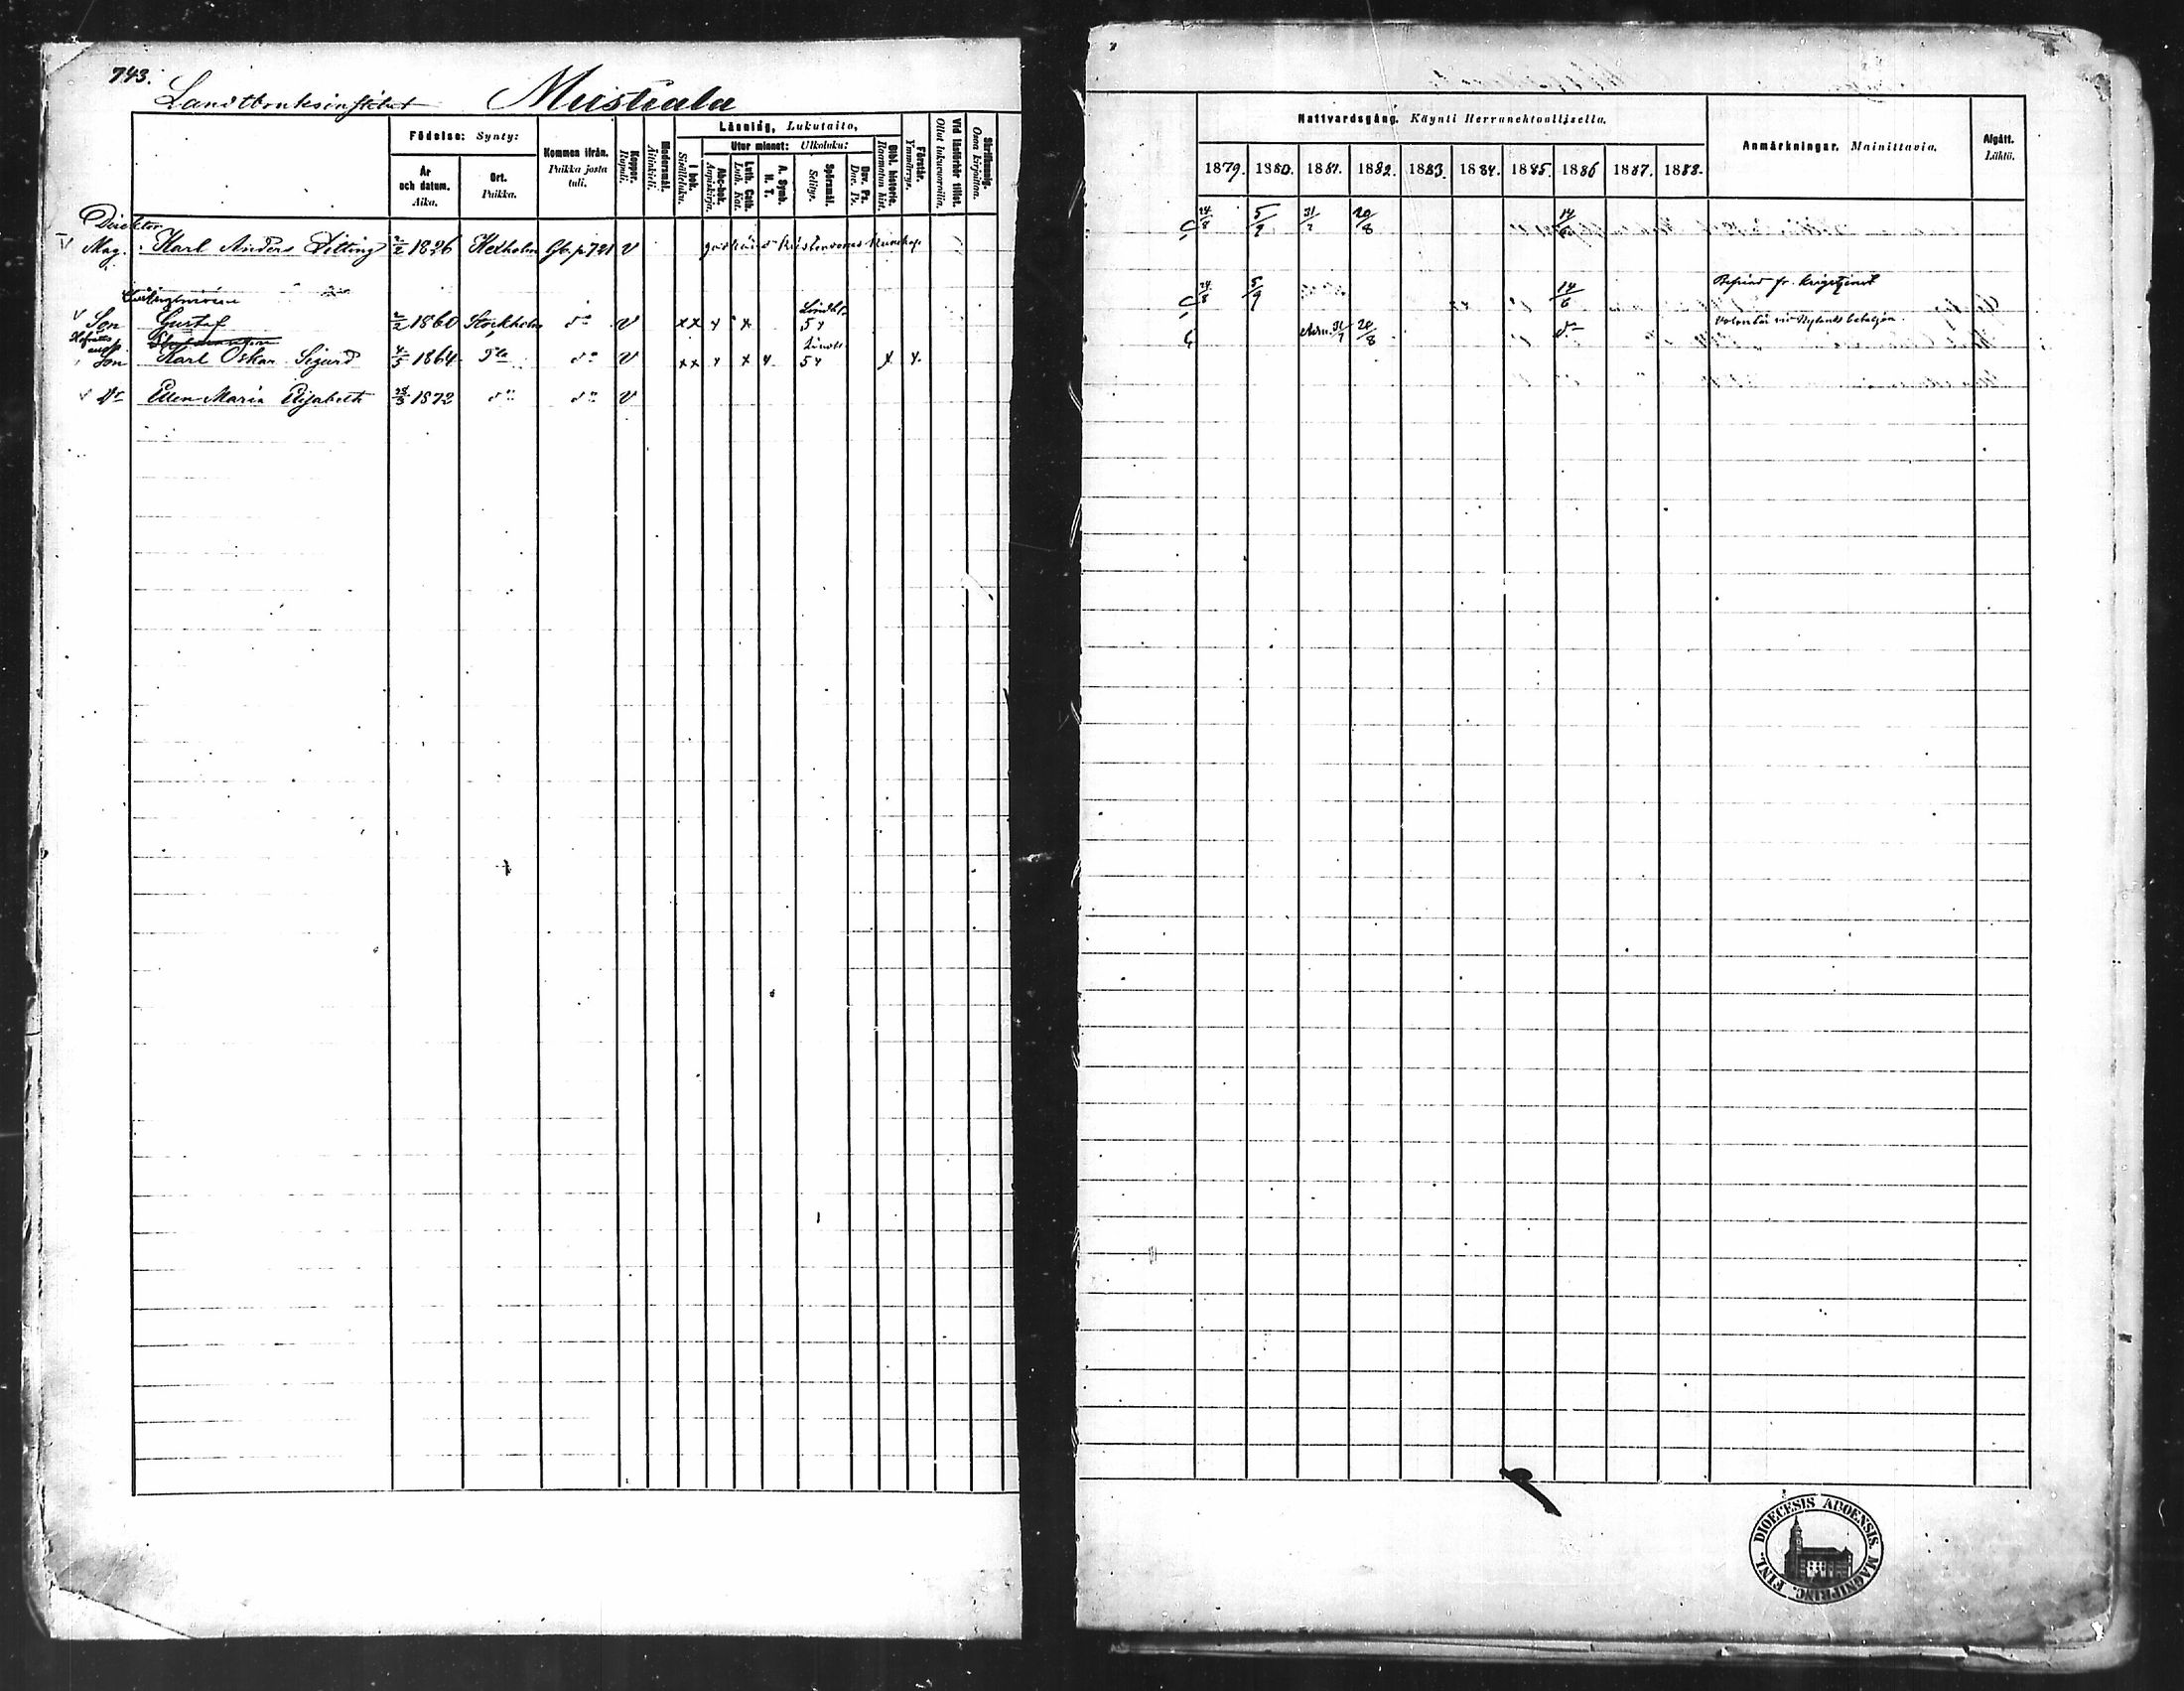 743.
Landtbruksinstitut Mustiala
Födelse: Synty:
År och datum. Aika.
Ort. Paikka.
Kommen ifrån. Paikka josta tuli.
Koppor. Rupuli.
Modersmål. Äitinkieli.
Läsning, Lukutaito,
I bok. Sisälleluku.
Utur minnet: Ulkoluku:
Abc-bok. Aapiskirja.
Luth. Cath. Luth. Kat.
A. Symb. H. T.
Spörsmål. Selitys.
Dav. Ps. Dav. Ps.
Bibl. historia. Raamatun hist.
Förstår. Ymmärrys.
Vid läsförhör tillst. Ollut lukuvuoroilla.
Skrifkunnig. Osaa kirjoittaa.
Direktor
Mag. Karl Anders 2/2 1826 Hexholm Gb. p 721 V
Son Gustaf 1860 Stockholm do V x x x x 5 x
Son Karl Oskar Sigurd 4/5 1864 do do V x x x x x 5 x x x
Dr Ellen Maria Elisabeth 1872 do do V
Nattvardsgång. Käynti Herranehtoollisella.
1879. 1880. 1881. 1882. 1883. 1884. 1885. 1886 1887. 1888.
Anmärkningar. Mainittavia.
Afgått. Lähtö.
C 24/8 5/9 31/7 20/8 14/6
C 24/8 5/9 14/6 Befriad fr. krigstjenst
31/7 20/8 do Volontär vid Nylands bataljon
FINL. DIOECESIS ABOENSIS MAGNI PRINC.